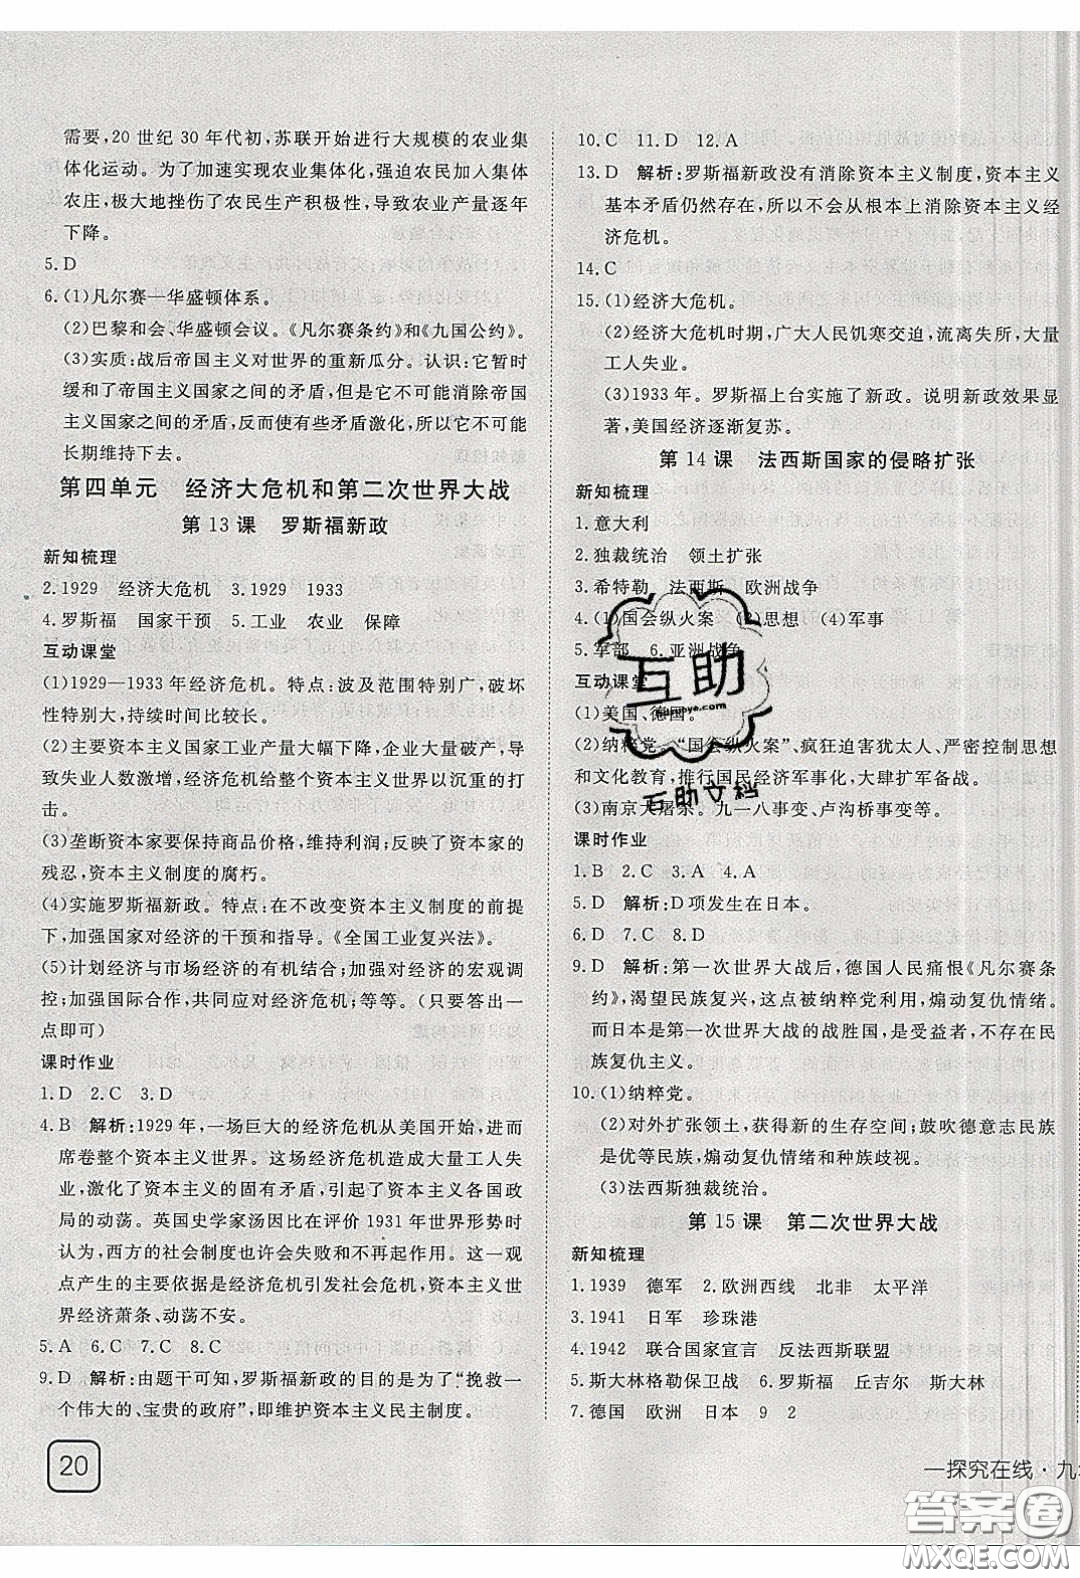 需要,20 世纪 30 年代初,苏联开始进行大规模的农业集
体化运动。为了加速实现农业集体化,强迫农民加入集体
农庄,极大地挫伤了农民生产积极性,导致农业产量逐年
下降。
5. D
6. (1)凡尔赛—华盛顿体系。
(2)巴黎和会、华盛顿会议。《凡尔赛条约》和《九国公约》。
(3)实质:战后帝国主义对世界的重新瓜分。认识:它暂时
缓和了帝国主义国家之间的矛盾,但是它不可能消除帝国
主义国家之间的矛盾,反而使有些矛盾激化,所以它不可能
长期维持下去。
第四单元 经济大危机和第二次世界大战
第 13 课 罗斯福新政
新知梳理
2. 1929 经济大危机 3. 1929 1933
4. 罗斯福 国家干预 5. 工业 农业 保障
互动课堂
(1)1929—1933 年经济危机。特点:波及范围特别广,破坏
性特别大,持续时间比较长。
(2)主要资本主义国家工业产量大幅下降,企业大量破产,导
致失业人数激增,经济危机给整个资本主义世界以沉重的打
击。
(3)垄断资本家要保持商品价格,维持利润;反映了资本家的
残忍,资本主义制度的腐朽。
(4)实施罗斯福新政。特点:在不改变资本主义制度的前提
下,加强国家对经济的干预和指导。《全国工业复兴法》。
(5)计划经济与市场经济的有机结合;加强对经济的宏观调
控;加强国际合作,共同应对经济危机;等等。(只要答出一
点即可)
课时作业
1. D 2. C 3. D
4. B 解析:1929 年,一场巨大的经济危机从美国开始,进而
席卷整个资本主义世界。这场经济危机造成大量工人失
业,激化了资本主义的固有矛盾,引起了资本主义各国政
局的动荡。英国史学家汤因比在评价 1931 年世界形势时
认为,西方的社会制度会失败和不再起作用。这一观
点产生的主要依据是经济危机引发社会危机,资本主义世
界经济萧条、动荡不安。
5. A 6. C 7. C 8. C
9. D 解析:由题干可知,罗斯福新政的目的是为了“挽救一
个伟大的、宝贵的政府”,即维护资本主义民主制度。
20
10. C 11. D 12. A
13. D 解析:罗斯福新政没有消除资本主义制度,资本主义
基本矛盾仍然存在,所以不会从根本上消除资本主义经
济危机。
14. C
15. (1)经济大危机。
(2)经济大危机时期,广大人民饥寒交迫,流离失所,大量
工人失业。
(3)1933 年。罗斯福上台实施了新政。说明新政效果显
著,美国经济逐渐复苏。
第 14 课 法西斯国家的侵略扩张
新知梳理
1. 意大利
2. 独裁统治 领土扩张
3. 希特勒 法西斯 欧洲战争
4. (1)国会纵火案 (3)思想 (4)军事
5. 军部 6. 亚洲战争
互动课堂
(1)美国、德国。
(2)纳粹党。“国会纵火案”、疯狂迫害犹太人、严密控制思想
和文化教育,推行国民经济军事化,大肆扩军备战。
(3)南京大屠杀。九一八事变、卢沟桥事变等。
课时作业
1. B 2. C 3. A 4. A
5. D 解析:D 项发生在日本。
6. D 7. C 8. D
9. D 解析:第一次世界大战后,德国人民痛恨《凡尔赛条
约》,渴望民族复兴,这一点被纳粹党利用,煽动复仇情绪。
而日本是第一次世界大战的战胜国,是受益者,不存在民
族复仇主义。
10. (1)纳粹党。
(2)对外扩张领土,获得新的生存空间;鼓吹德意志民族
是优等民族,煽动复仇情绪和种族歧视。
(3)法西斯独裁统治。
第 15 课 第二次世界大战
新知梳理
1. 1939 德军 2. 欧洲西线 北非 太平洋
3. 1941 日军 珍珠港
4. 1942 联合国家宣言 反法西斯联盟
5. 斯大林格勒保卫战 6. 罗斯福 丘吉尔 斯大林
7. 德国 欧洲 日本 9 2
一探究在线·九
互助
互助文档
答案卷
MXQE.COM